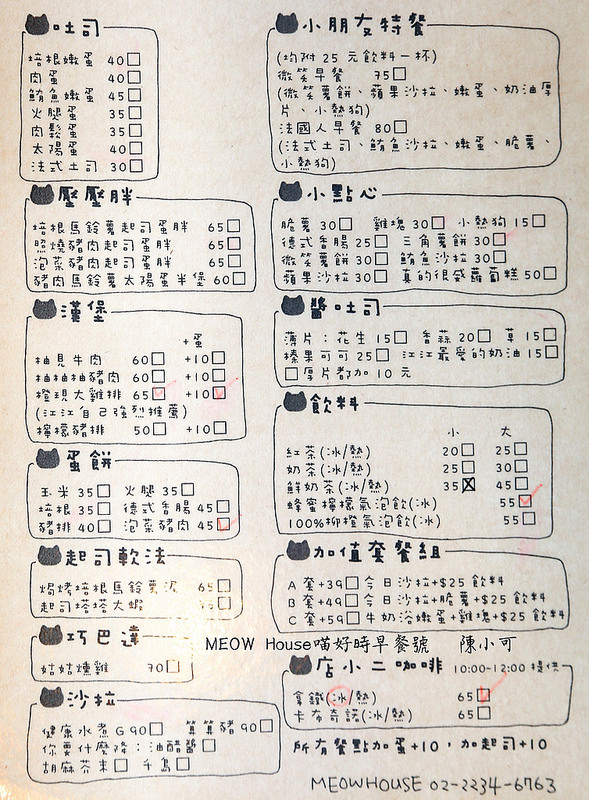 吐司
培根嫩蛋 40
肉蛋 40
鮪魚嫩蛋 45
火腿蛋 35
肉鬆蛋 35
太陽蛋 40
法式土司 30
小朋友特餐
(均附 25 元飲料一杯)
微笑早餐 75
(微笑薯餅、蘋果沙拉、嫩蛋、奶油厚
片、小熱狗)
法國人早餐 80
(法式土司、鮪魚沙拉、嫩蛋、脆薯、
小熱狗)
壓壓胖
培根馬鈴薯起司蛋胖 65
照燒豬肉起司蛋胖 65
泡菜豬肉起司蛋胖 65
豬肉馬鈴薯太陽蛋半堡 60
小點心
脆薯 30 雞塊 30 小熱狗 15
德式香腸 25 三角薯餅 30
微笑薯餅 30 鮪魚沙拉 30
蘋果沙拉 30 真的很感蘿蔔糕 50
漢堡
+蛋
柚見牛肉 60 +10
柚柚柚柚豬肉 60 +10
橙現大雞排 65 +10
(江江自己強烈推薦)
檸檬豬排 50 +10
醬吐司
薄片：花生 15 香蒜 20 草 15
榛果可可 25 江江最愛的奶油 15
厚片都加 10 元
飲料
小 大
紅茶(冰/熱) 20 25
奶茶(冰/熱) 25 30
鮮奶茶(冰/熱) 35 45
蜂蜜檸檬氣泡飲(冰) 55
100%柳橙氣泡飲(冰) 55
蛋餅
玉米 35 火腿 35
培根 35 德式香腸 45
豬排 40 泡菜豬肉 45
起司軟法
焗烤培根馬鈴薯泥 65
起司塔塔大蝦
加值套餐組
A 套+39 今日沙拉+$25 飲料
B 套+49 今日沙拉+脆薯+$25 飲料
C 套+59 牛奶浴嫩蛋+雞塊+$25 飲料
巧巴達
姑姑燻雞 70
MEOW House喵好時早餐號 陳小可
店小二咖啡 10:00-12:00 提供
拿鐵(冰/熱) 65
卡布奇諾(冰/熱) 65
沙拉
健康水煮 G 90 算算豬 90
你要什麼醬：油醋醬
胡麻芥末 千島
所有餐點加蛋+10，加起司+10
MEOWHOUSE 02-2234-6763